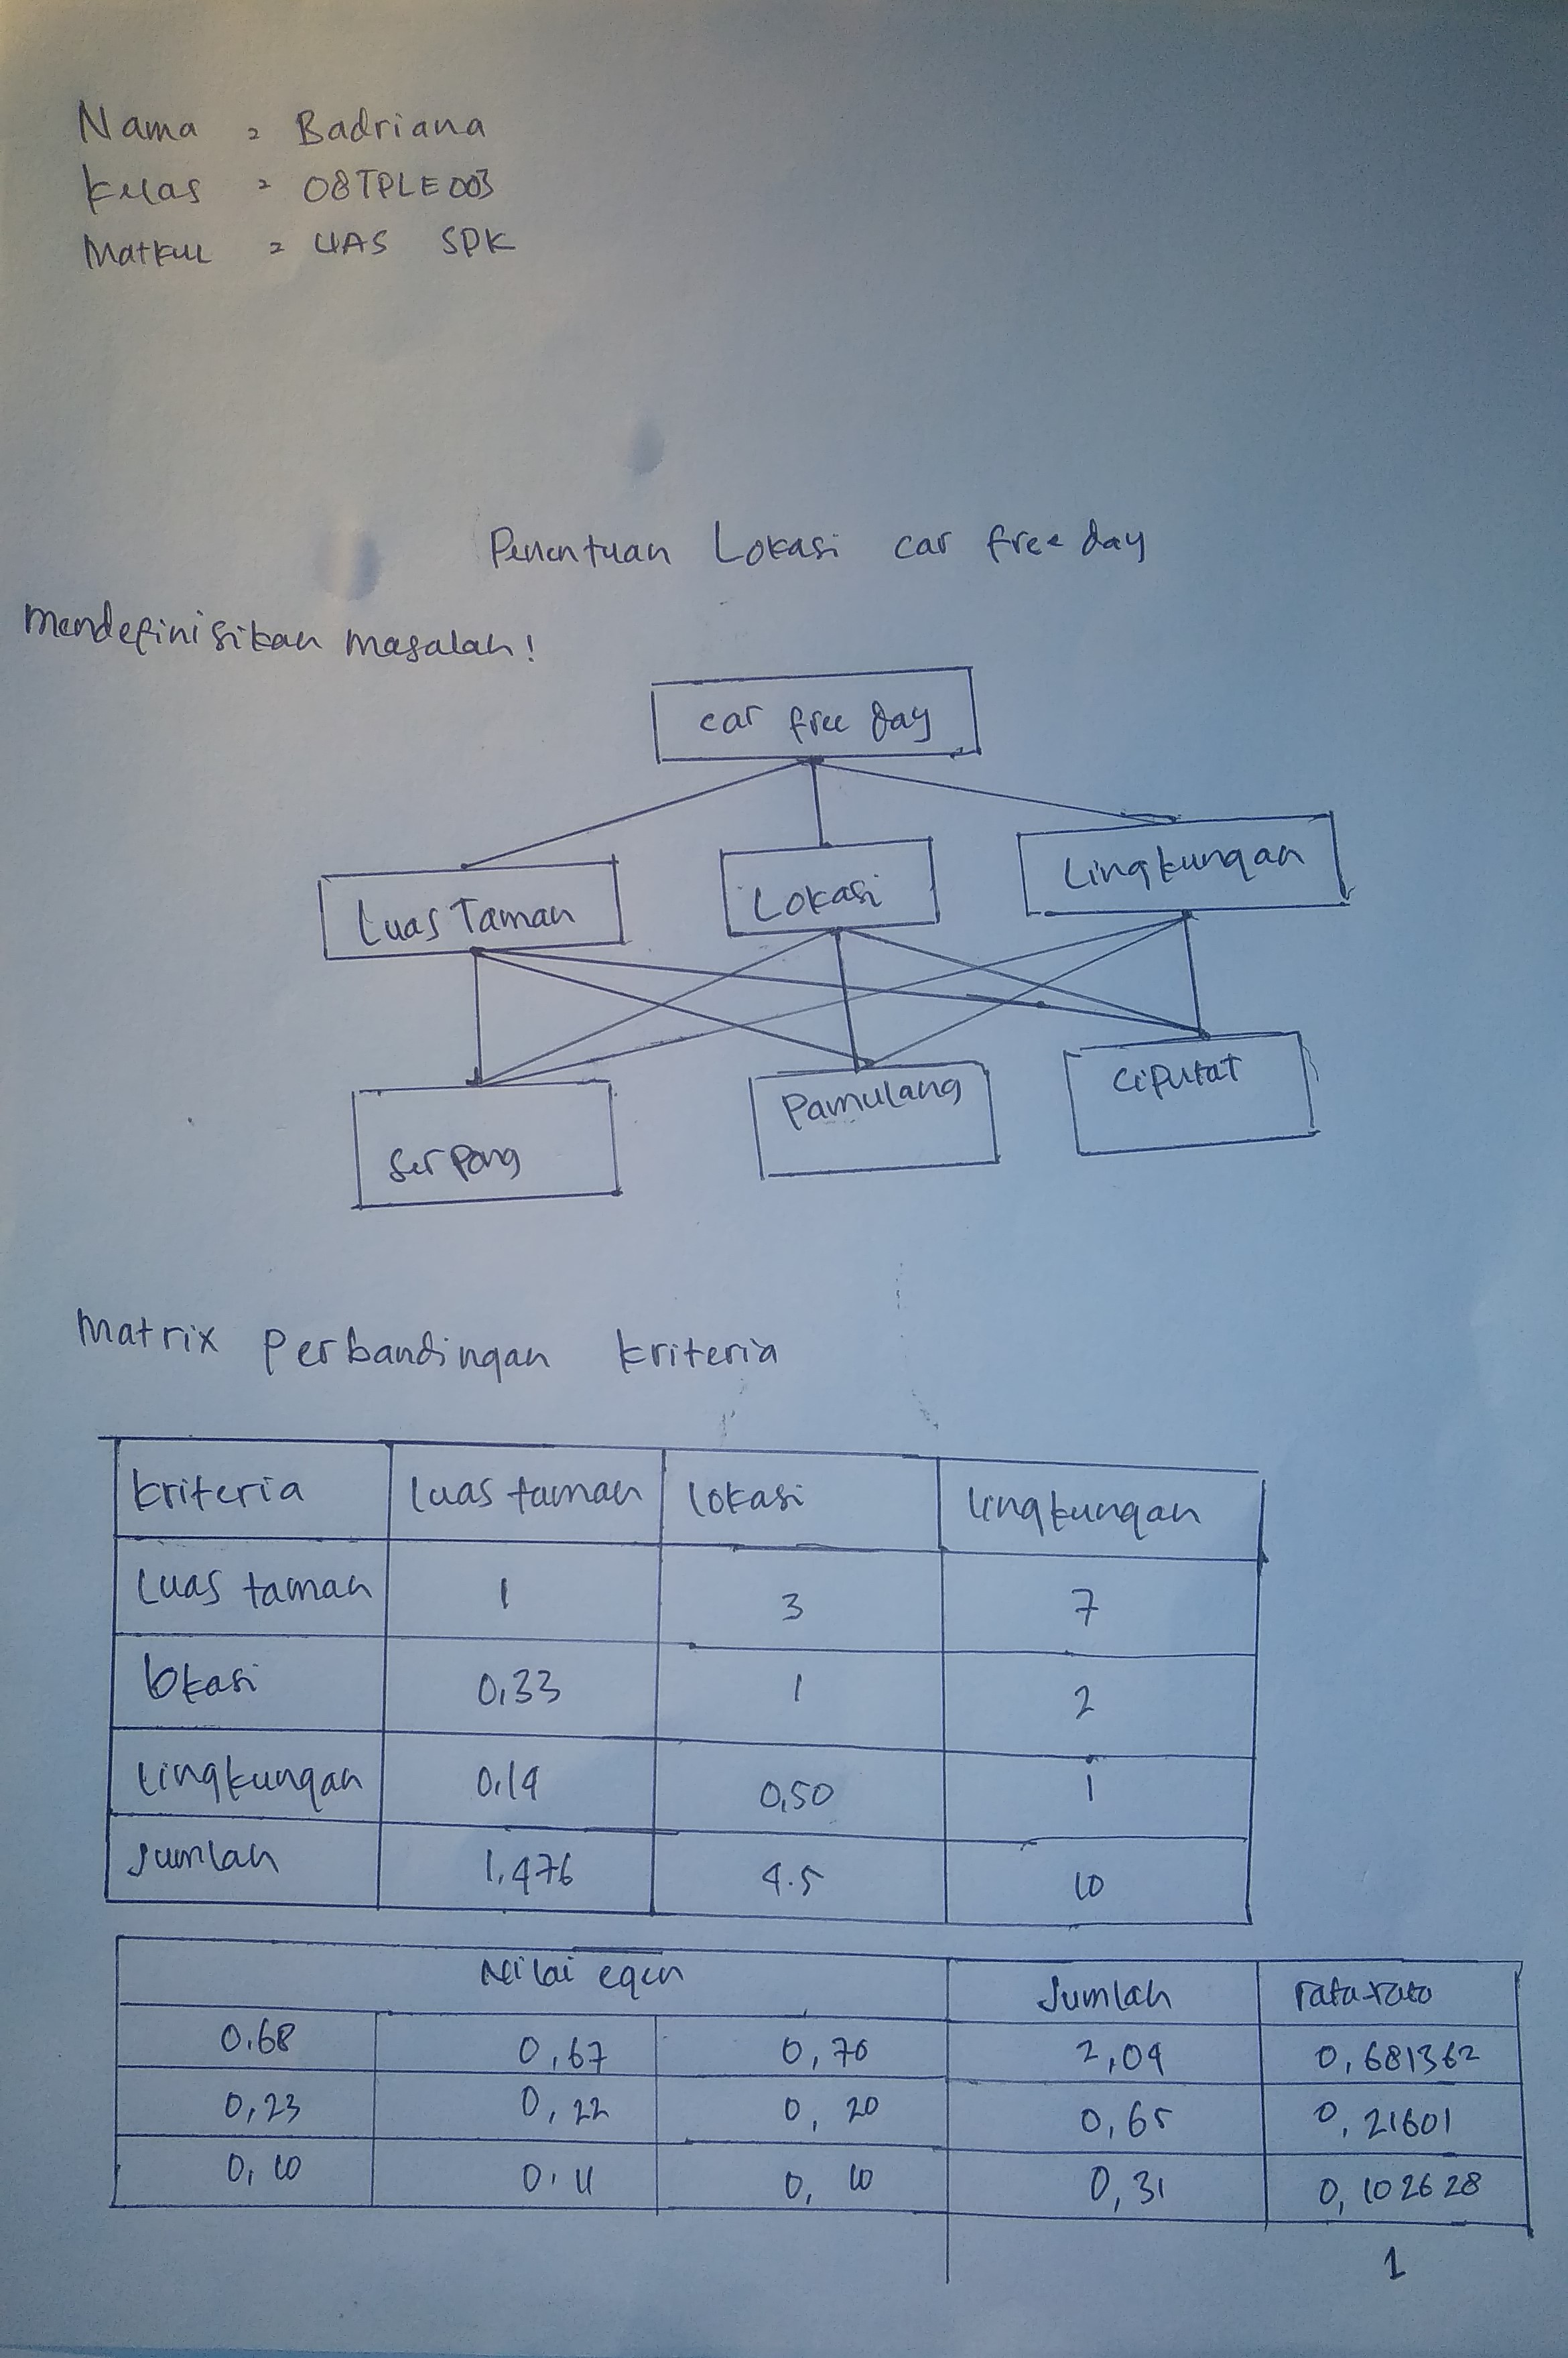 Nama = Badriana
Kelas = 08TPLE003
Matkul = UAS SPK
Penentuan Lokasi car free day
Mendefinisikan Masalah!
car free day
Luas Taman Lokasi Lingkungan
Serpong Pamulang Ciputat
Matrix Perbandingan Kriteria
Kriteria Luas taman Lokasi Lingkungan
Luas taman 1 3 7
Lokasi 0,33 1 2
Lingkungan 0,14 0,50 1
Jumlah 1,476 4.5 10
Nilai egen Jumlah rata-rata
0.68 0,67 0,70 2,04 0,681362
0,23 0,22 0,20 0,65 0,21601
0,10 0.11 0,10 0,31 0,102628
1